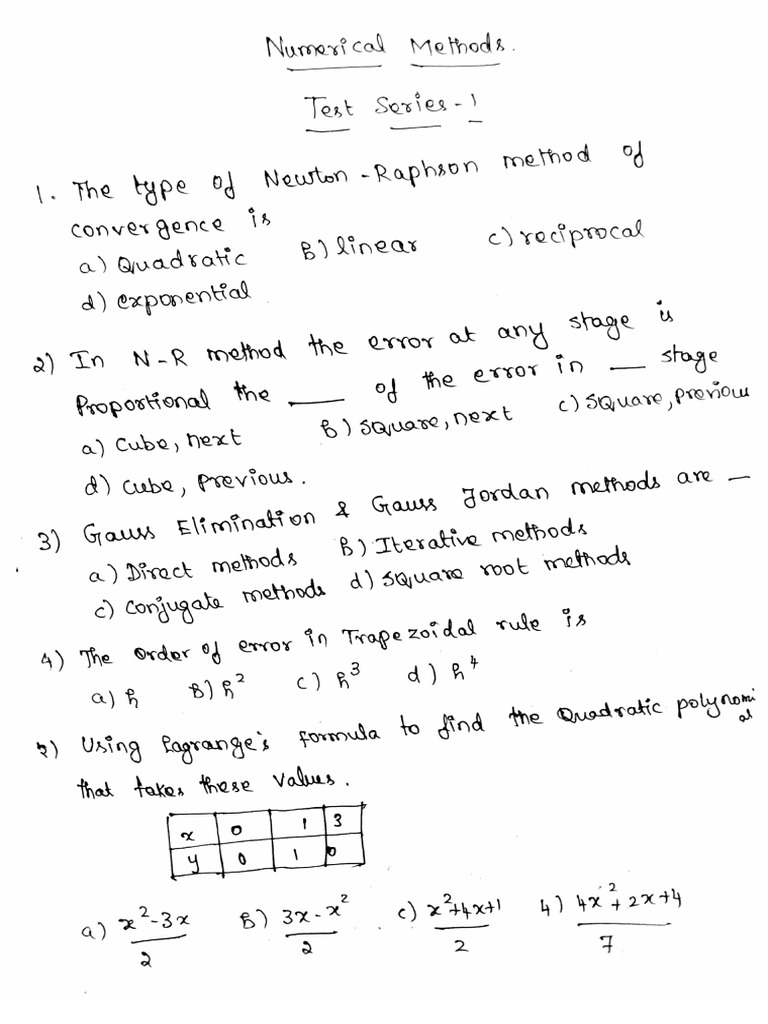 Numerical Methods.
Test Series - 1
1. The type of Newton-Raphson method of
convergence is
a) Quadratic B) linear c) reciprocal
d) exponential
2) In N-R method the error at any stage is
Proportional the ___ of the error in ___ stage
a) Cube, next B) Square, next c) Square, previous
d) cube, previous.
3) Gauss Elimination & Gauss Jordan methods are —
a) Direct methods B) Iterative methods
c) Conjugate methods d) Square root methods
4) The order of error in Trapezoidal rule is
a) h B) h² c) h³ d) h⁴
5) Using Lagrange's formula to find the Quadratic polynomial
that takes these values.
x 0 1 3
y 0 1 0
a) x²-3x/2 B) 3x-x²/2 c) x²+4x+1/2 4) 4x²+2x+4/7